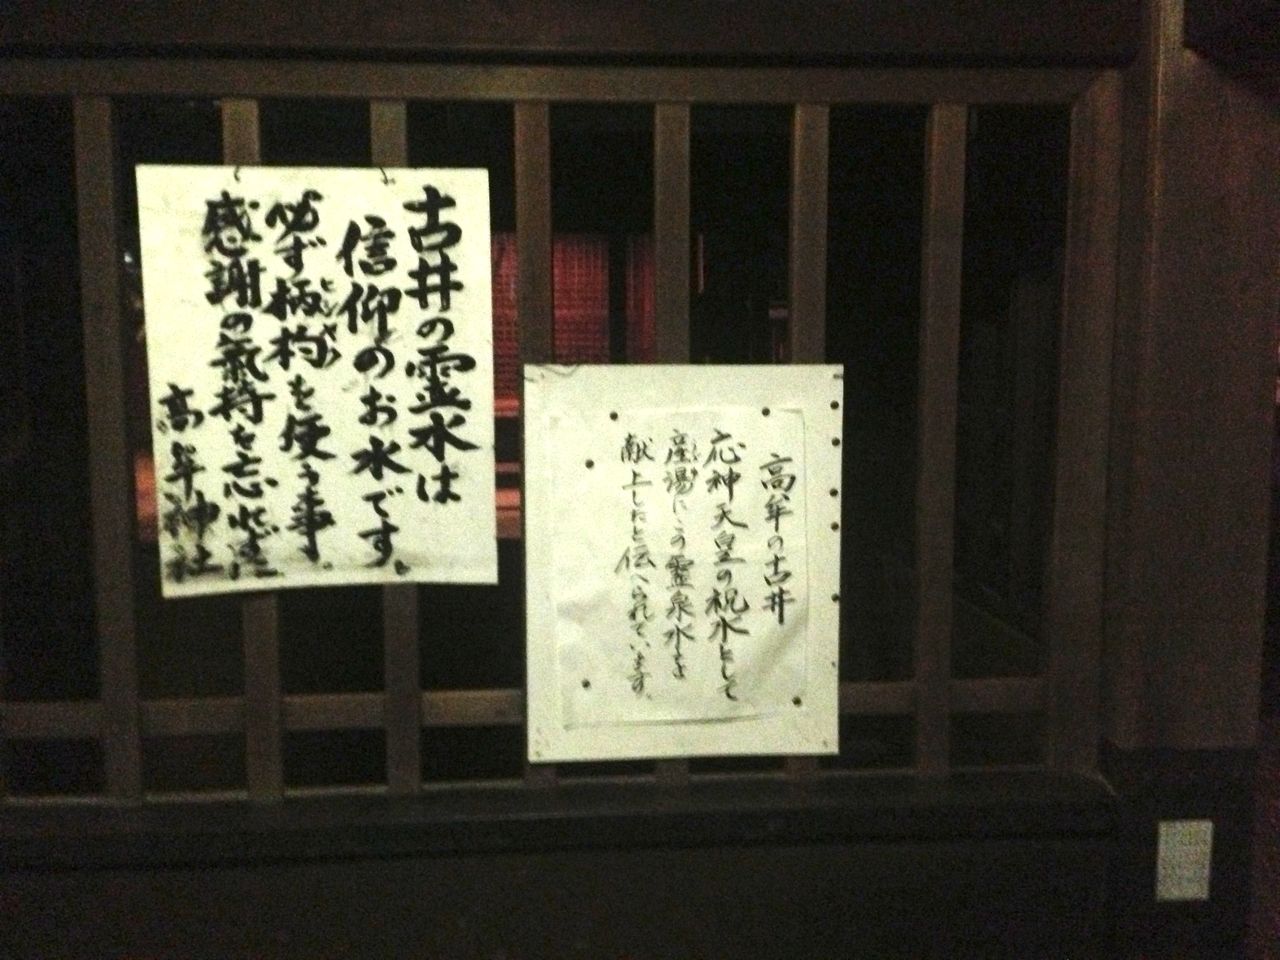 古井の霊水は
信仰のお水です。
必ず柄杓を使う事。
ヒシャク
感謝の氣持を忘れずに
高牟神社
高牟の古井
応神天皇の祝水として
産湯にこの霊泉水を
献上したと伝へられています。